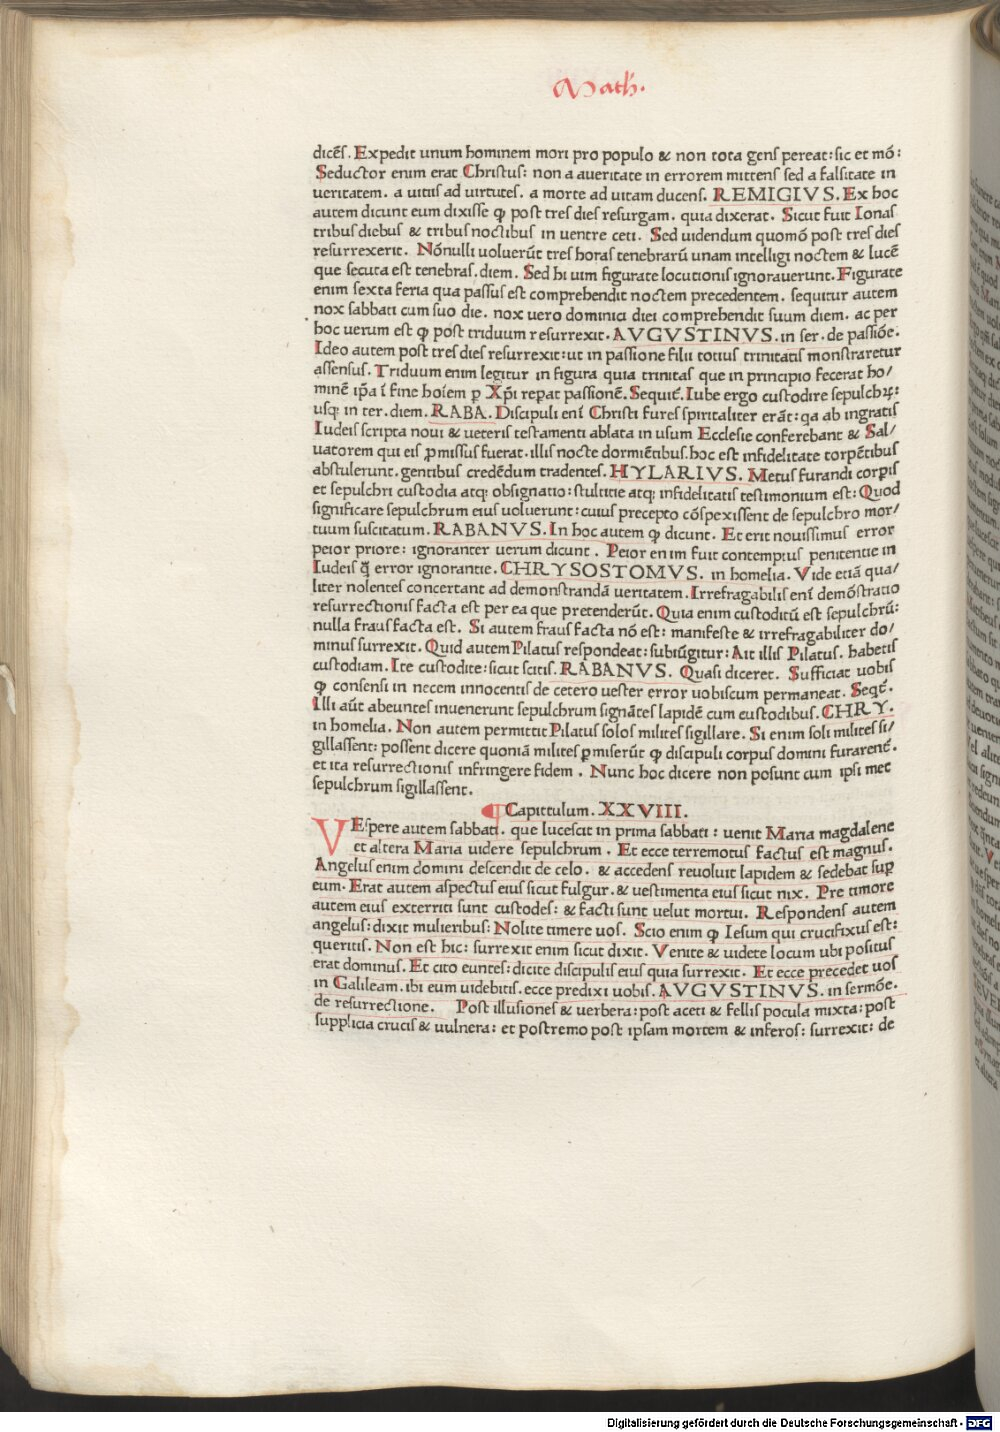 Math.
dicēs. Expedit unum hominem mori pro populo & non tota gens pereat: sic et mō:
Seductor enim erat Christus: non a aueritate in errorem mittens sed a falsitate in
ueritatem. a uitiis ad uirtutes. a morte ad uitam ducens. REMIGIVS. Ex hoc
autem dicunt eum dixisse ꝙ post tres dies resurgam. quia dixerat. Sicut fuit Ionas
tribus diebus & tribus noctibus in uentre ceti. Sed uidendum quomō post tres dies
resurrexerit. Nōnulli uoluerūt tres horas tenebrarū unam intelligi noctem & lucē
que secuta est tenebras. diem. Sed hi uim figurate locutionis ignorauerunt. Figurate
enim sexta feria qua passus est comprehendit noctem precedentem. sequitur autem
nox sabbati cum suo die. nox uero dominici diei comprehendit suum diem. ac per
hoc uerum est ꝙ post triduum resurrexit. AVGVSTINVS. in ser. de passiōe.
Ideo autem post tres dies resurrexit: ut in passione filii totius trinitatis monstraretur
assensus. Triduum enim legitur in figura quia trinitas que in principio fecerat ho/
minē ip̄a ī fine hoīem ꝑ Xp̄i repat passionē. Sequit̄. Iube ergo custodire sepulchꝝ:
usqꝫ in ter. diem. RABA. Discipuli enī Christi fures spiritaliter erāt: qa ab ingratis
Iudeis scripta noui & ueteris testamenti ablata in usum Ecclesie conferebant & Sal/
uatorem qui eis ꝓmissus fuerat. illis nocte dormiētibus. hoc est infidelitate torpētibus
abstulerunt. gentibus credēdum tradentes. HYLARIVS. Metus furandi corpis
et sepulchri custodia atqꝫ obsignatio: stultitie atqꝫ infidelitatis testimonium est: Quod
significare sepulchrum eius uoluerunt: cuius precepto cōspexissent de sepulchro mor/
tuum suscitatum. RABANVS. In hoc autem ꝙ dicunt. Et erit nouissimus error
peior priore: ignoranter uerum dicunt. Peior enim fuit contemptus penitentie in
Iudeis q̄ error ignorantie. CHRYSOSTOMVS. in homelia. Vide etiā qua/
liter nolentes concertant ad demonstrandā ueritatem. Irrefragabilis enī demōstratio
resurrectionis facta est per ea que pretenderūt. Quia enim custoditū est sepulchrū:
nulla fraus facta est. Si autem fraus facta nō est: manifeste & irrefragabiliter do/
minus surrexit. Quid autem Pilatus respondeat: subiūgitur: Ait illis Pilatus. habetis
custodiam. Ite custodite: sicut scitis. RABANVS. Quasi diceret. Sufficiat uobis
ꝙ consensi in necem innocentis de cetero uester error uobiscum permaneat. Seqt̄.
Illi aūt abeuntes inuenerunt sepulchrum signātes lapidē cum custodibus. CHRY.
in homelia. Non autem permittit Pilatus solos milites sigillare. Si enim soli milites si/
gillassent: possent dicere quoniā milites ꝑmiserūt ꝙ discipuli corpus domini furarent̄.
et ita resurrectionis infringere fidem. Nunc hoc dicere non posunt cum ipsi met
sepulchrum sigillassent.
Capitulum. XXVIII.
VEspere autem sabbati. que lucescit in prima sabbati: uenit Maria magdalene
et altera Maria uidere sepulchrum. Et ecce terremotus factus est magnus.
Angelus enim domini descendit de celo. & accedens reuoluit lapidem & sedebat suꝑ
eum. Erat autem aspectus eius sicut fulgur. & uestimenta eius sicut nix. Pre timore
autem eius exterriti sunt custodes: & facti sunt uelut mortui. Respondens autem
angelus: dixit mulieribus: Nolite timere uos. Scio enim ꝙ Iesum qui crucifixus est:
queritis. Non est hic: surrexit enim sicut dixit. Venite & uidete locum ubi positus
erat dominus. Et cito euntes: dicite discipulis eius quia surrexit. Et ecce precedet uos
in Galileam. ibi eum uidebitis. ecce predixi uobis. AVGVSTINVS. in sermōe.
de resurrectione. Post illusiones & uerbera: post aceti & fellis pocula mixta: post
supplicia crucis & uulnera: et postremo post ipsam mortem & inferos: surrexit: de
Digitalisierung gefördert durch die Deutsche Forschungsgemeinschaft - DFG